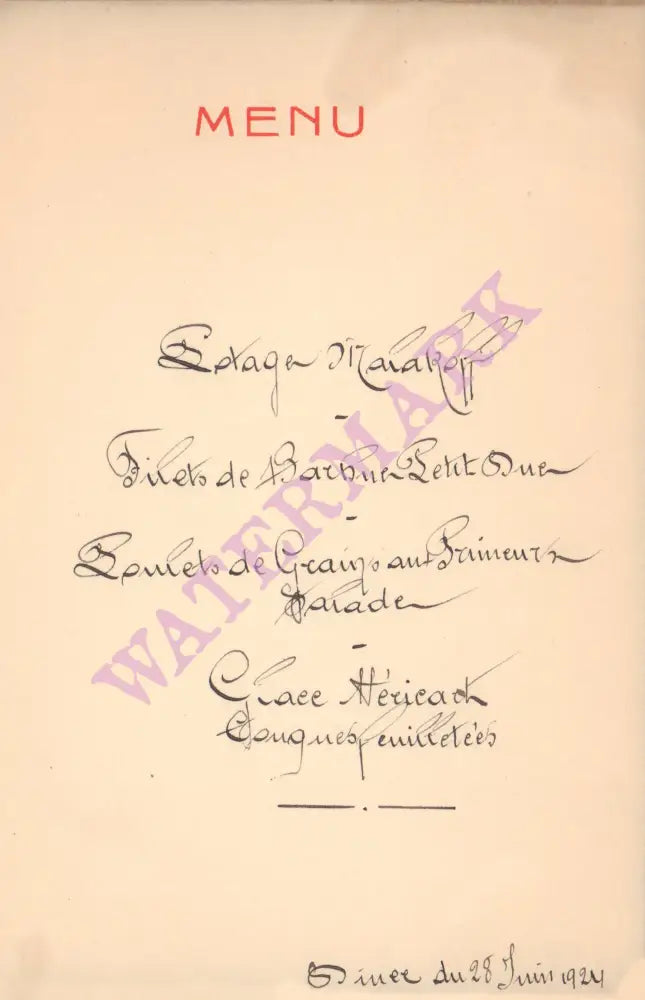 MENU
Potage Malakoff
Filets de Barbue Petit Duc
Poulets de Grains aux Primeurs
Salade
Glace Héricart
Langues feuilletées
Diner du 28 Juin 1924
WATERMARK